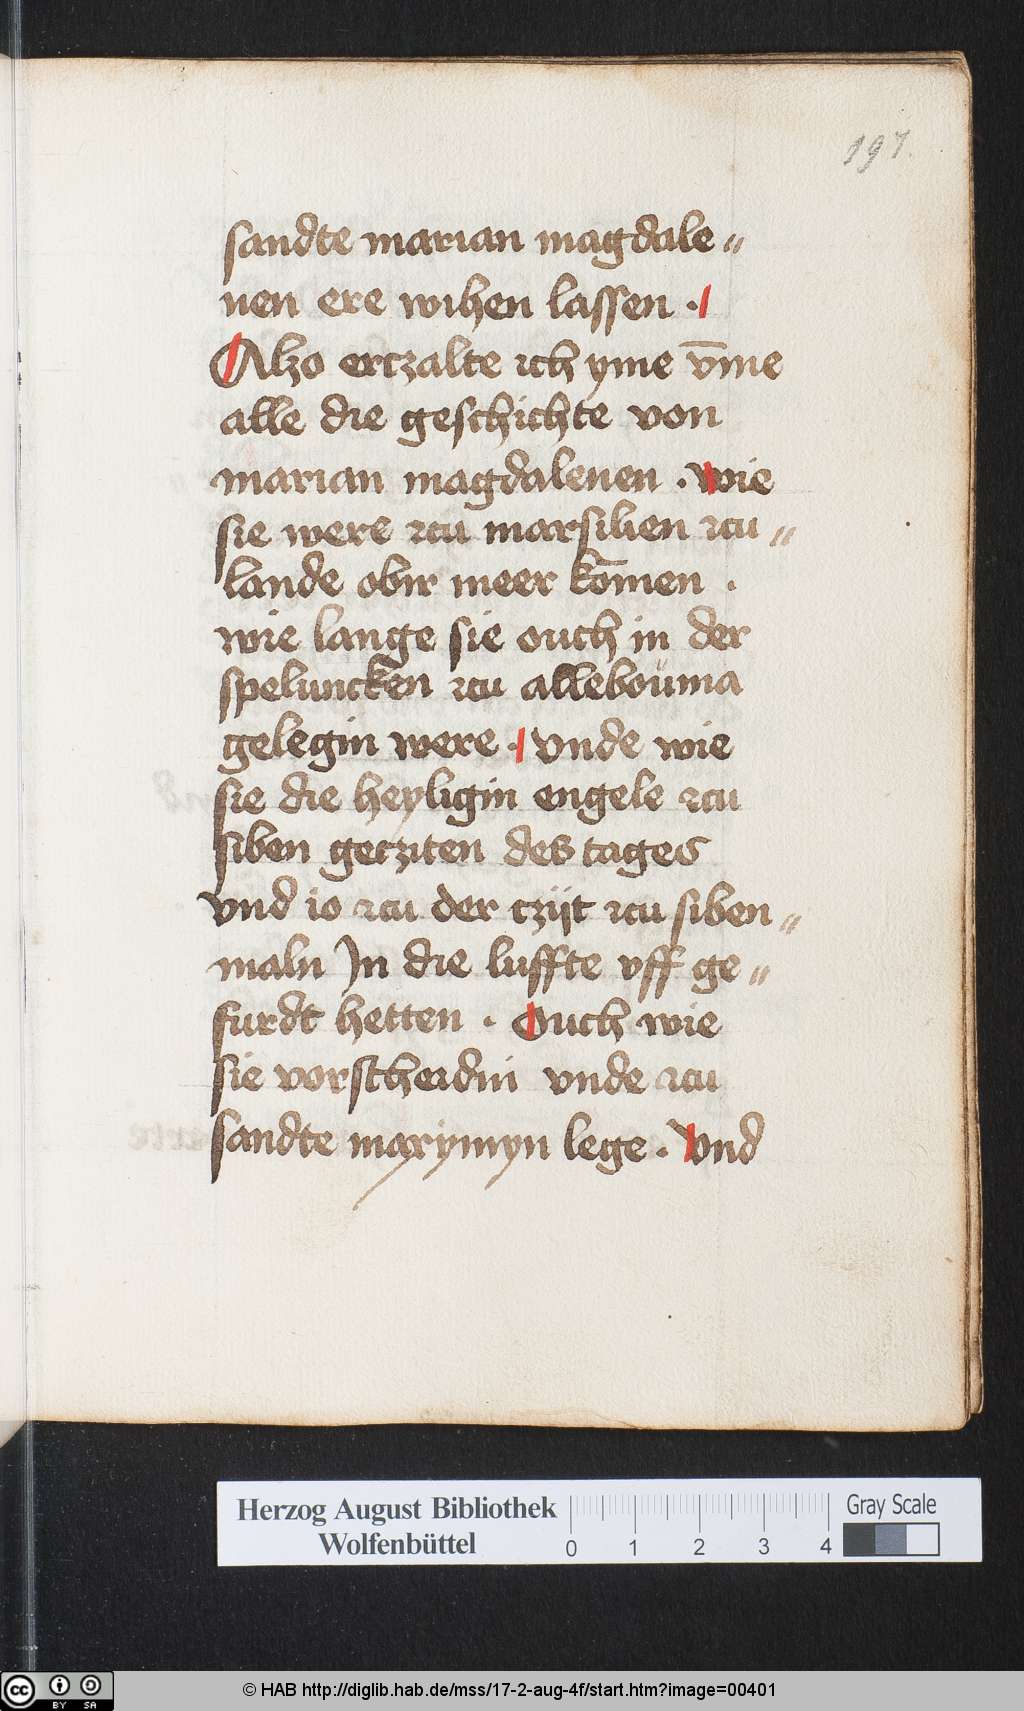 197.
sandte marian magdale〃
nen ere wihen lassen ·
Alzo erczalte ich yme v̄me
alle die geschichte von
marian magdalenen · wie
sie were zcu marsilien zcu〃
lande obir meer kōmen ·
wie lange sie ouch in der
speluncken zcu alleboüma
gelegin were · Vnde wie
sie die heyligin engele zcu
siben gecziten des tages
vnd io zcu der czijt zcu siben〃
maln In die luffte vff ge〃
furdt hetten · Ouch wie
sie vorscheidin vnde zcu
sandte maxymyn lege · Vnd
Herzog August Bibliothek
Wolfenbüttel
0 1 2 3 4
Gray Scale
cc BY SA
© HAB http://diglib.hab.de/mss/17-2-aug-4f/start.htm?image=00401